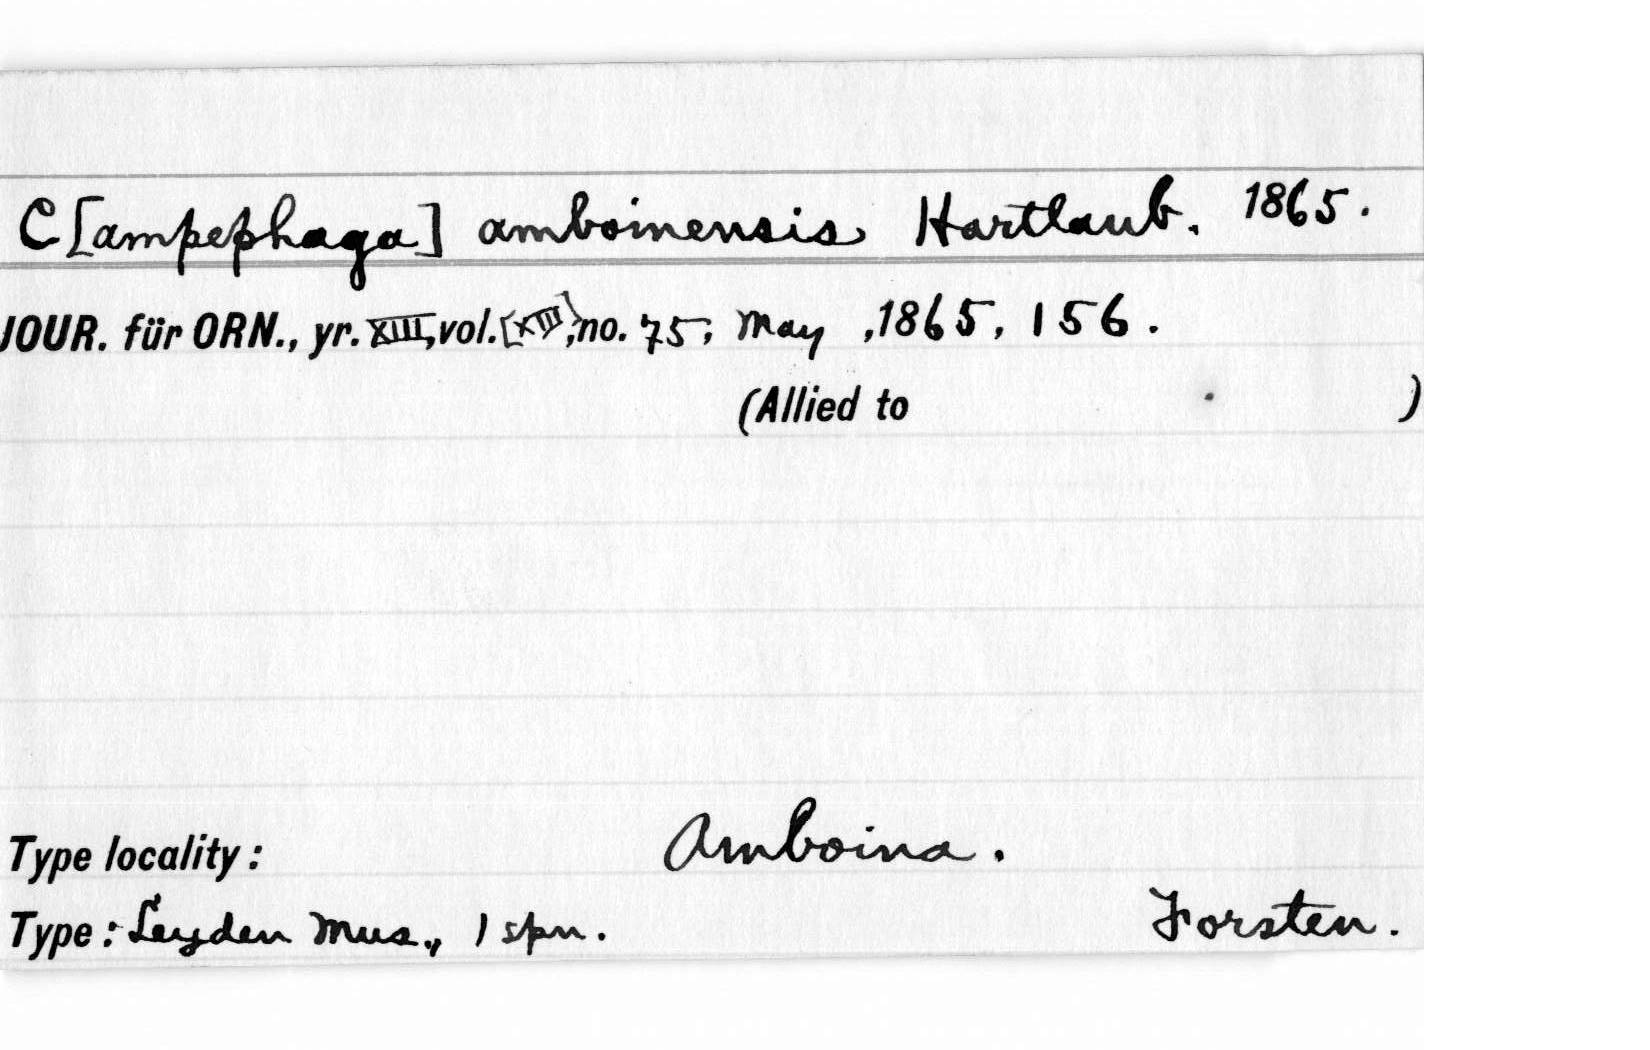 C[ampephaga] amboinensis Hartlaub. 1865.
JOUR. für ORN., yr. XIII, vol. [XIII], no. 75, May, 1865, 156.
(Allied to )
Type locality: Amboina.
Type: Leyden Mus., 1 spn. Forsten.